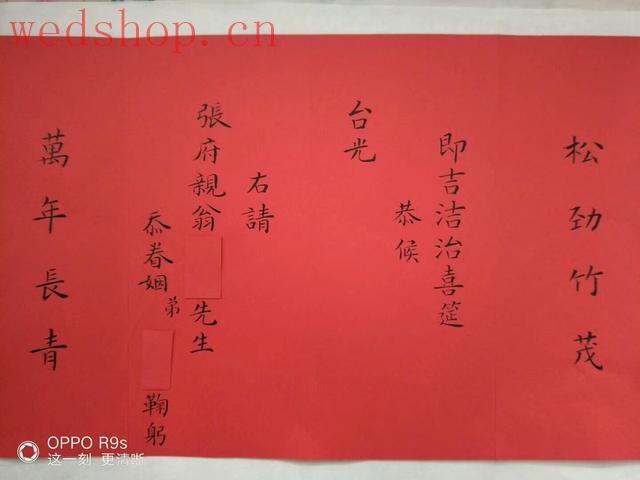 wedshop.cn
松劲竹茂
即吉洁治喜筵
恭候
台光
右請
張府親翁
先生
忝眷姻
弟
鞠躬
萬年長青
OPPO R9s
这一刻 更清晰